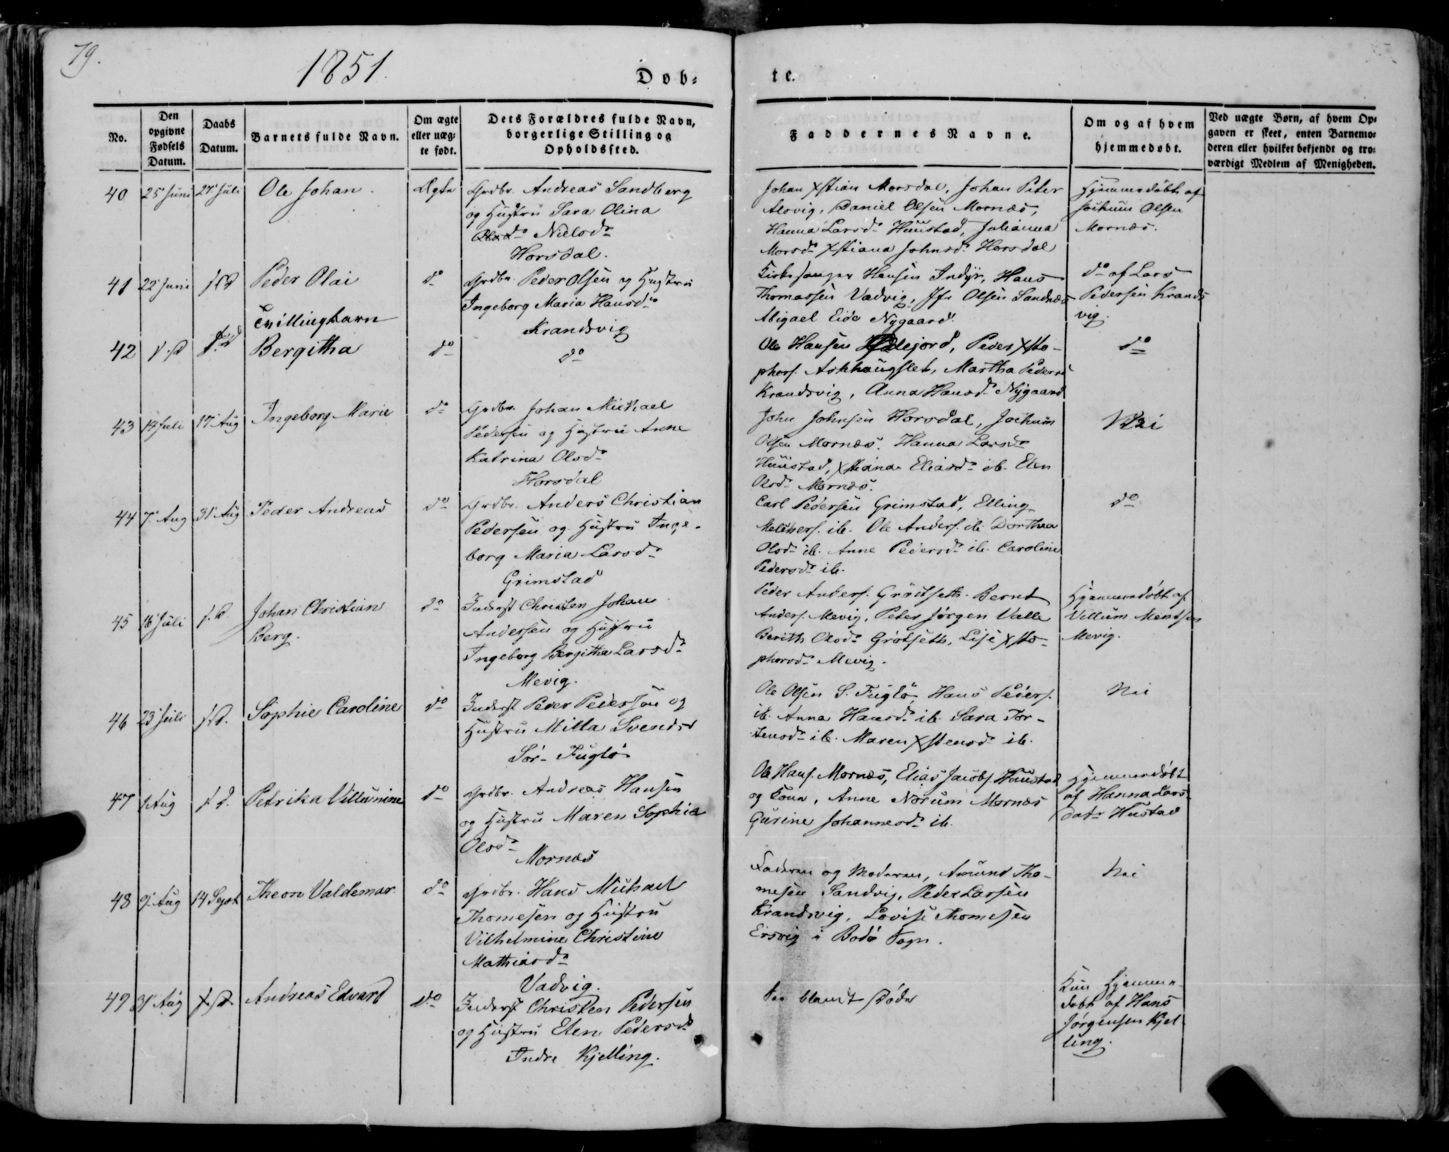 79.
1851.
Døb-
te.
No.
Den opgivne Fødsels Datum.
Daabs Datum.
Barnets fulde Navn.
Om ægte eller uægte født.
Dets Forældres fulde Navn, borgerlige Stilling og Opholdssted.
Faddernes Navne.
Om og af hvem hjemmedøbt.
Ved uægte Børn, af hvem Opgaven er skeet, enten Barnemoderen eller hvilket bekjendt og troværdigt Medlem af Menigheden.
40 25 Juni 27 Juli Ole Johan. Ægte
Grdbr. Andreas Sandberg
og Hustru Sara Olina
Nielsd.
Horsdal.
Johan Xstian Morsdal, Johan Peter
Daniel Olsen Mornæs,
Hanna Larsd. Huustad, Julianna
Morsd. Xstiana Johnsd. Horsdal
Hjemmedøbt af
Jochum Olsen
Mornæs.
41 22 Juni s.D. Peder Olai do
Tvillingbarn
Grdbr. Peder Olsen og Hustru
Ingeborg Maria Hansd.
Krandsvig
Kirkesanger Hansen Indyr, Hans
Thomassen Vadvig, Olsen Sandnæs
Abigael Nygaard.
do af Lars
Pedersen Krands
vig.
42 s.D. Bergitha do
do
Ole Hansen Pedejord, Peder Xsto-
phers. Martha Peders
Krandsvig, Anna Hansd. Nygaard
do
43 14 Juli 17 Aug Ingeborg Marie do
Grdbr. Johan Michael
Pedersen og Hustru Anne
Katrina Olsd.
Horsdal
John Johnsen Horsdal, Jochum
Olsen Mornæs. Hanna Larsd.
Huustad, Xstiana Eliasd. ib. Elen
Olsd. Mornæs.
Nei
44 7 Aug 31 Aug Peder Andreas do
Grdbr. Anders Christian
Pedersen og Hustru Inge-
borg Maria Larsd.
Grimstad
Carl Pedersen Grimstad, Elling
Melchers. ib. Ole Anders. ib. Dorthea
Olsd. ib. Anne Pedersd. ib. Caroline
Pedersd. ib.
do
45 16 Juli s.D. Johan Christian
Berg.
do
Inderst Christen Johan
Andersen og Hustru
Ingeborg Bergitha Larsd.
Mevig.
Peder Anders. Grøtseth. Bernt
Anders. Mevig, Peter Jørgen Valle
Berith Olsd. Grøtseth, Lise Xsto-
phersd. Mevig.
Hjemmedøbt af
Villum Mentsen
Mevig.
46 23 Juli s.D. Sophie Caroline do
Inderst Peder Pedersen og
Hustru Milla Svendsd
Sør-Fuglø
Ole Olsen S. Fuglø Hans Peders.
ib. Anna Hansd. ib. Sara Tor-
ib. Maren Xstensd. ib.
Nei
47 Aug s.D. Petrika Villumine do
Grdbr. Andreas Hansen
og Hustru Maren Sophia
Olsd.
Mornæs
Ole Hans. Mornæs, Elias Jacobs. Huustad
og Kona, Anne Norum Mornæs
Gurine Johannesd. ib.
Hjemmedøbt
af Hanna Lars-
datr Hustad
48 9 Aug 14 Sept Theon Valdemar do
Grdbr. Hans Michael
Thomesen og Hustru
Vilhelmine Christine
Mathiasd.
Vadvig.
Faderen og Moderen, Amund Tho-
mesen Sandvig, Peder Larsen
Krandsvig, Lovise Thomesen
Ersvig i Bodø Sogn.
Nei
49 31 Aug s.D. Andreas Edvard do
Inderst Christen Pedersen
og Hustru Elen Pedersd.
Indre Kjelling.
blandt Døde
Kun hjemme-
døbt af Hans
Jørgensen Kjel
ling.